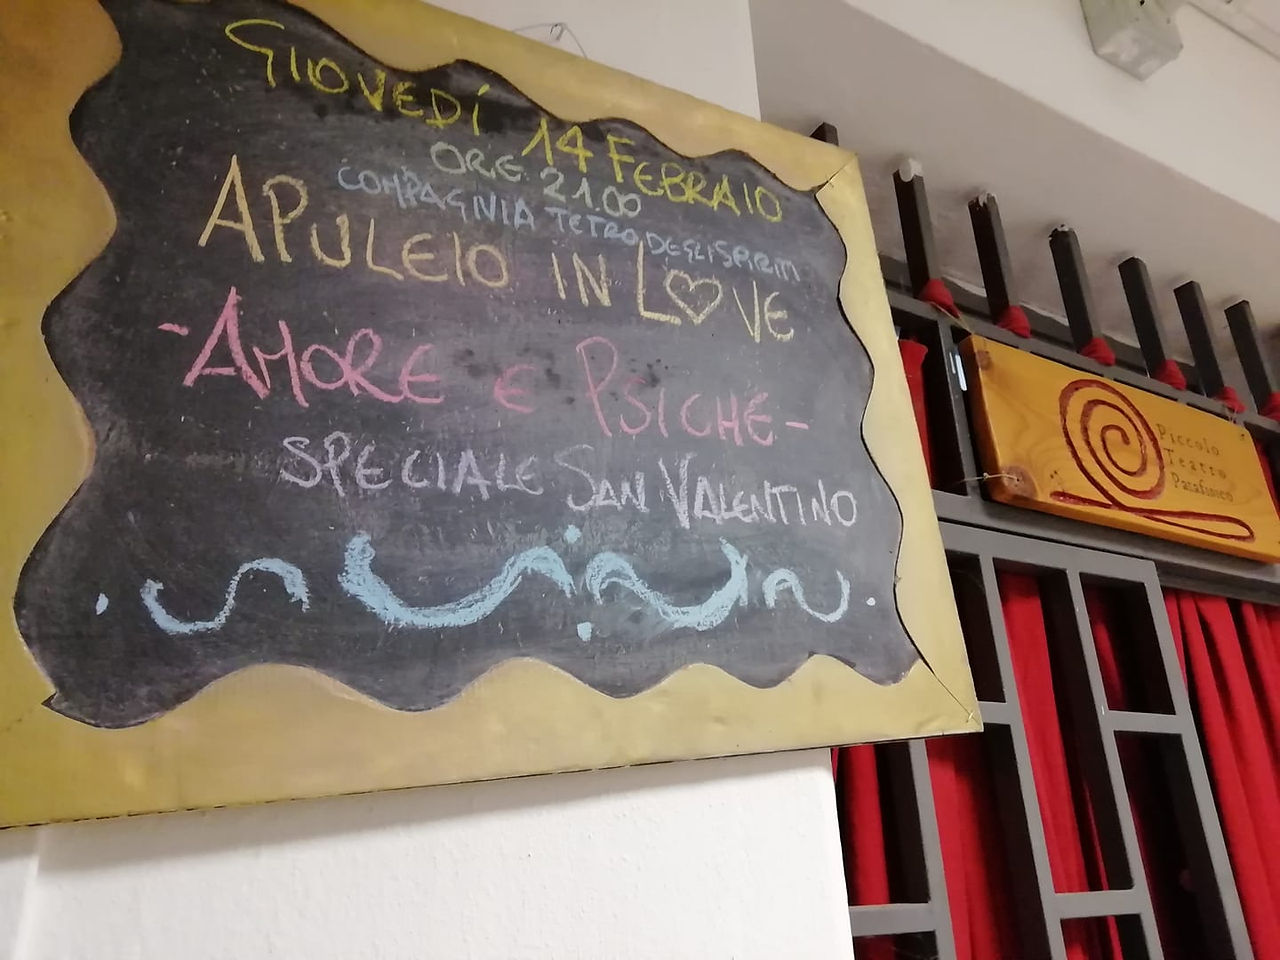 GIOVEDÍ 14 FEBRAIO
ORE 21.00
COMPAGNIA TETRO DEGLI SPIRITI
APULEIO IN LOVE
- AMORE E PSICHE -
SPECIALE SAN VALENTINO
Piccolo
Teatro
Patafisico